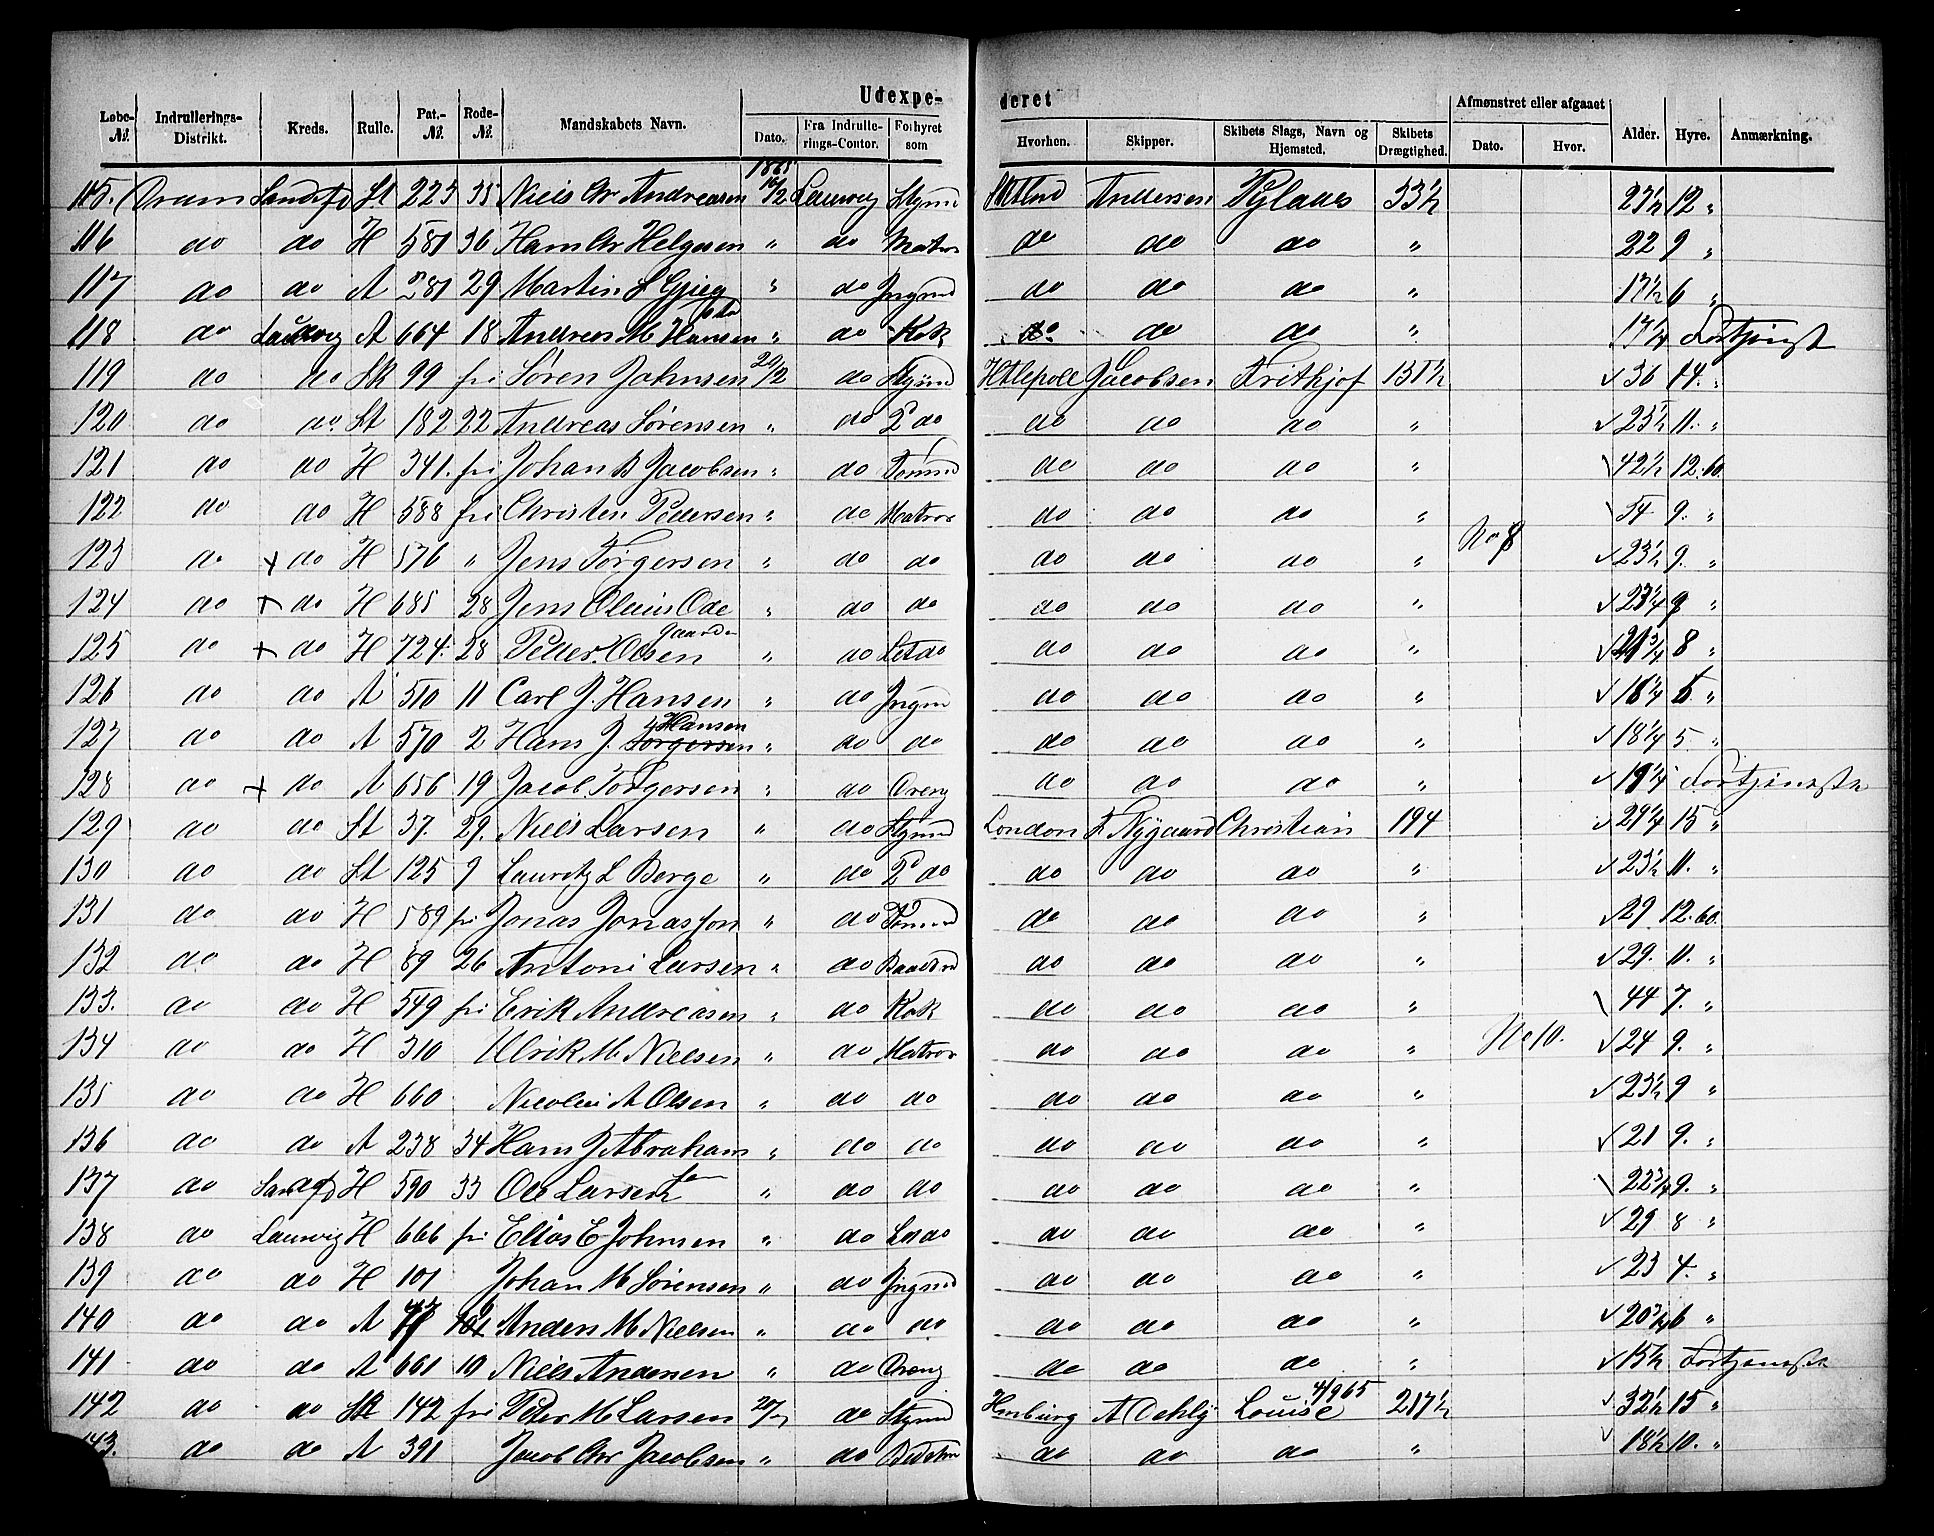 Udexpe- deret
Løbe-№. Indrullerings-Distrikt. Kreds. Rulle. Pat.-№. Rode-№. Mandskabets Navn. Dato. Fra Indrulle-rings-Contor. Forhyret som Hvorhen. Skipper. Skibets Slags, Navn og Hjemsted. Skibets Drægtighed. Afmønstret eller afgaaet Dato. Hvor. Alder. Hyre. Anmærkning.
1865
115. Dram St 223 35 Niels Chr Andreasen 16/2 Laurvig Stym Andersen Pylades 33½ 27½ 12 "
116 do do H 581 36 Hans Chr Helgesen " do Matros do do do " 22 9 "
117 do do A 281 29 Martin " do Jngmd do do do " 17½ 6 "
118 do Laurvig A 664 18 Andreas M Hansen " do Kok do do do " Fortjenst
119 do do Sk 99 fri Søren Johnsen 20/2 do Stymd Htlepoll Jacobsen Frithjof 131½ 36 14. "
120 do do. St 182 22 Andreas Sørensen " do 2 do do do do " 25½ 11. "
121 do do H 341. fri Johan B Jacobsen " do Tømmd do do do " 42½ 12.60.
122 do do H 588 fri Christen Pedersen " do Matros do do do " 54 9. "
123 do + do H 576 " Jens Torgersen " do do do do do " No 8 23½ 9. "
124 do + do H 685 28 Jens Olaus Ode " do do do do do " 23¼ 9 "
gaarden
125 do + do H 724. 28 Peder Olsen " do Letdo do do do " 21¾ 8 "
126 do do A 510 11 Carl J. Hansen " do Jngm do do do " 16¼ 5 "
Hansen
127 do do A 570 2 Hans J. Torgersen " do do do do do " 18¼ 5 "
128 do + do A 656 19 Jacob Torgersen " do Dreng do do do " 19¼ Fortjeneste
129 do do St 37. 29. Niels Larsen " do Stymd London F. Nygaard Christian 194 29¼ 15 "
130 do do St 125 9 Lauritz L Berge " do 2 do do do do " 23½ 11. "
131 do do H 589 fri Jonas Jonassøn " do Tømmd do do do " 29. 12.60.
132 do do H 89 26 Antoni Larsen " do Baadsmd do do do " 29. 11. "
133. do do H 549 fri Erik Andreasen " do Kok do do do " 44 7. "
134 do do H 310 Ulrik M Nielsen " do Matros do do do " No 10. 24 9. "
135 do do H 660 Nicolai A Olsen " do do do do do " 23½ 9 "
136 do do A 238 34 Hans J Abraham " do do do do do " 21 9. "
sen
137 do H 590 33 Ole Larsen " do do do do do " 22¾ 9. "
138 do Laurvig H 666 fri Elias E Johnsen " do Letdo do do do " 29 8 "
139 do do H 101 Johan M Sørensen " do Jngmd do do do " 23 4. "
140 do do A Anders M Nielsen " do do do do do " 20¾ 6 "
141 do do A 661 10 Niels Andersen " do Dreng do do do " 15½ Fortjenste
4/9 65
142 do do Sk 142 fri Peter M Larsen do Stymd Hmburg A Dehly Louise 217½ 32½ 15 "
143. do do A 391 Jacob Chr Jacobsen " do do do do " 18½ 10. "